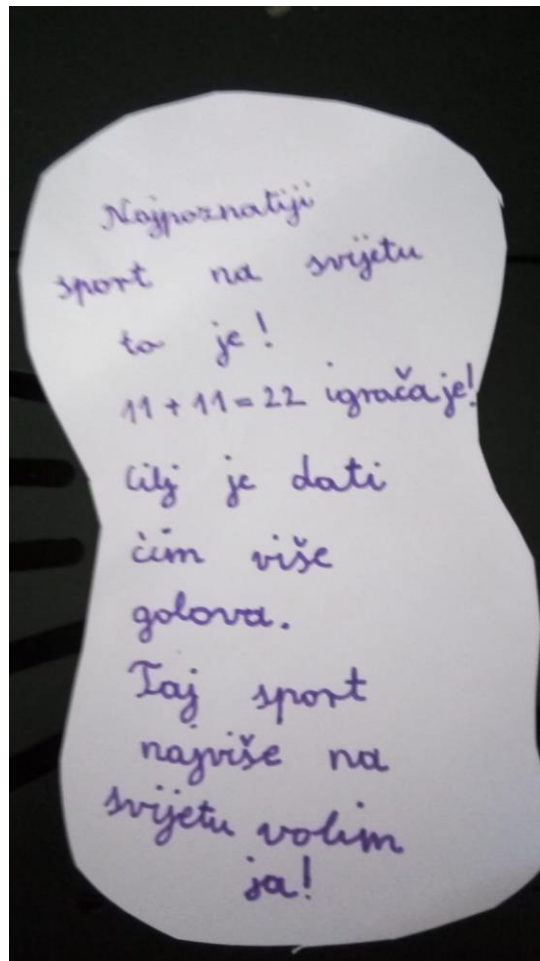 Najpoznatiji
sport na svijetu
to je!
11 + 11 = 22 igrača je!
Cilj je dati
čim više
golova.
Taj sport
najviše na
svijetu volim
ja!